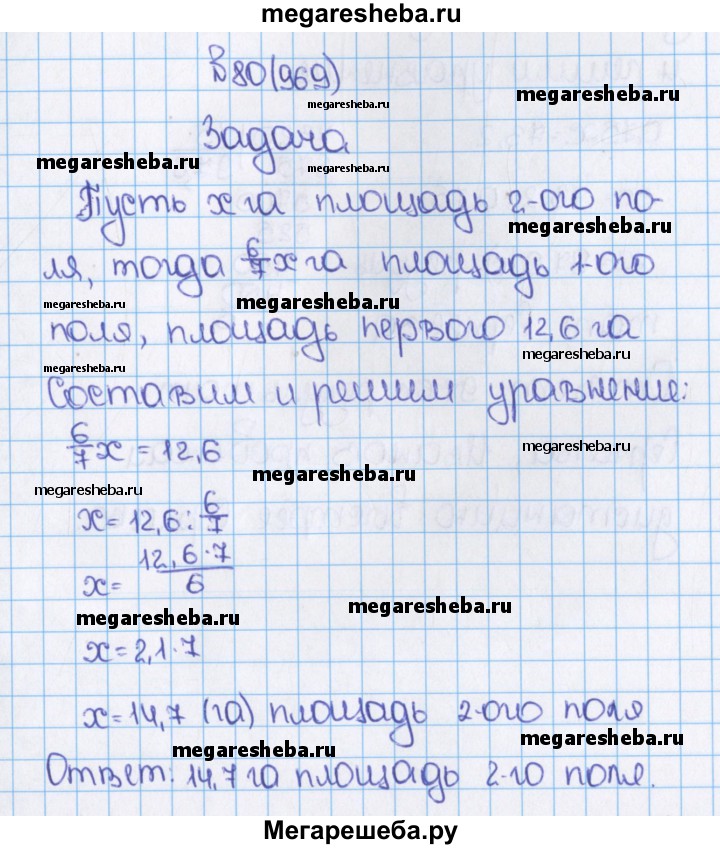 megaresheba.ru
В 80(969)
megaresheba.ru
megaresheba.ru
Задача
megaresheba.ru
megaresheba.ru
Пусть x га площадь 2-ого по-
megaresheba.ru
ля, тогда 6/7 x га площадь 1-ого
megaresheba.ru
megaresheba.ru
поля, площадь первого 12,6 га
megaresheba.ru
megaresheba.ru
Составим и решим уравнение:
6/7 x = 12,6
megaresheba.ru
megaresheba.ru
megaresheba.ru
x = 12,6 : 6/7
x = 12,6 · 7 / 6
megaresheba.ru
megaresheba.ru
x = 2,1 · 7
x = 14,7 (га) площадь 2-ого поля
megaresheba.ru
megaresheba.ru
Ответ: 14,7 га площадь 2-го поля.
megaresheba.ru
Мегарешеба.ру